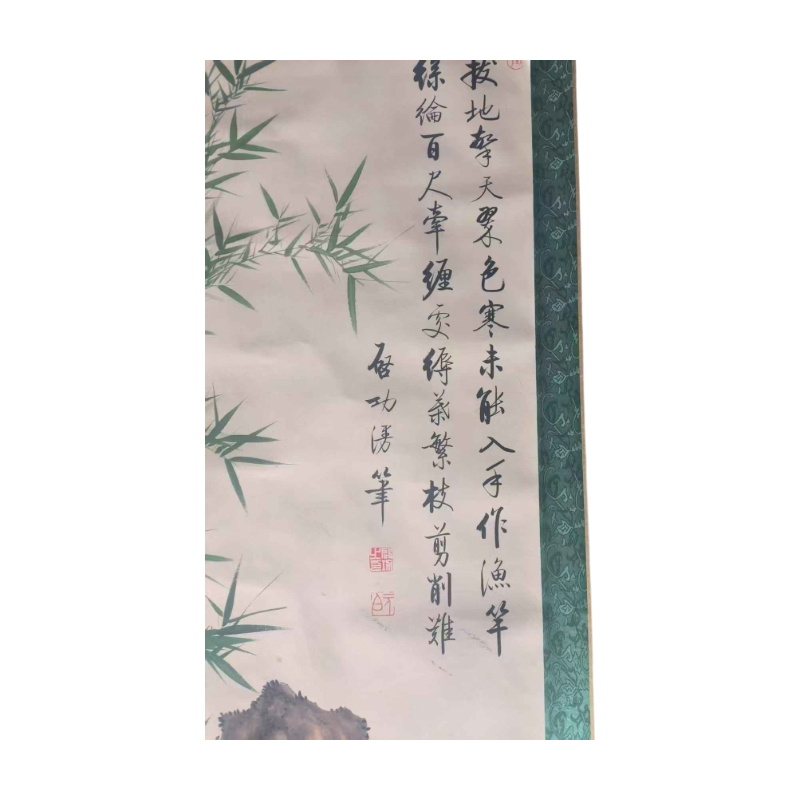 拔地擎天翠色寒未能入手作漁竿
絲綸百尺牽纏處縟葉繁枝剪削難
啓功漫筆